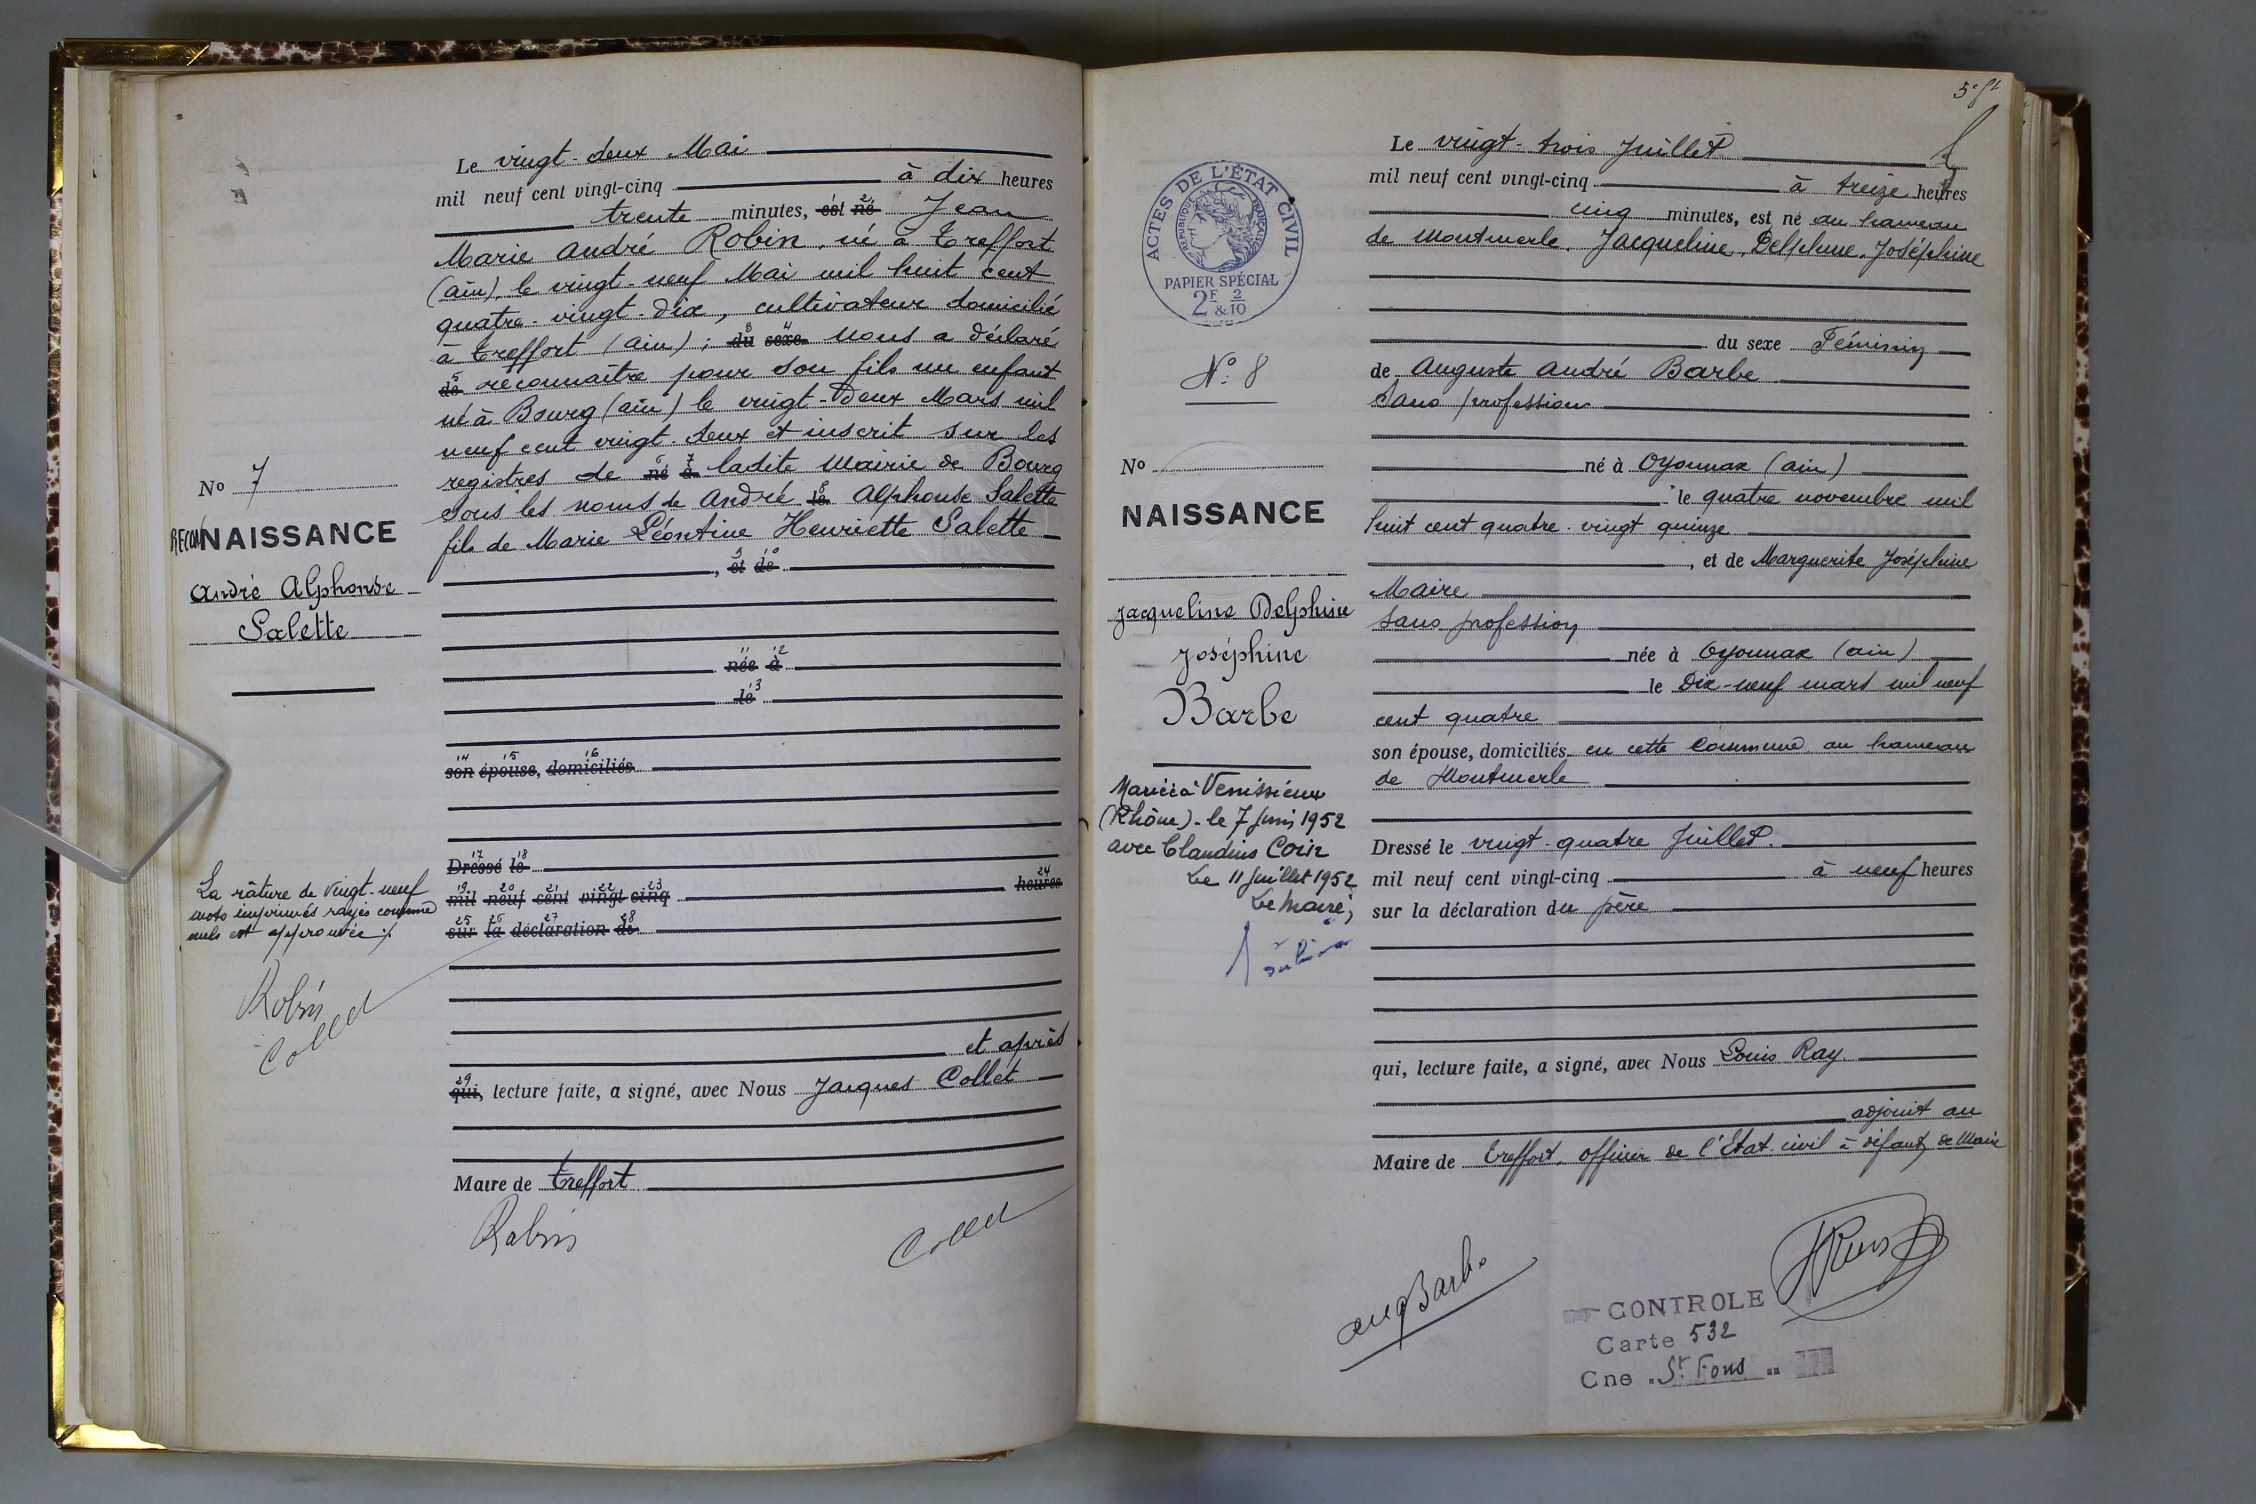 Le vingt-deux Mai
mil neuf cent vingt-cinq à dix heures
trente minutes, est né Jean
Marie André Robin, né à Treffort
(Ain), le vingt-neuf Mai mil huit cent
quatre-vingt-dix, cultivateur domicilié
à Treffort (Ain) ; du sexe nous a déclaré
de reconnaître pour son fils un enfant
né à Bourg (Ain) le vingt-deux Mars mil
neuf cent vingt-deux et inscrit sur les
registres de né à ladite Mairie de Bourg
sous les noms de André le Alphonse Salette
fils de Marie Léontine Henriette Salette
, et de
née à
le
son épouse, domiciliés
Dressé le
mil neuf cent vingt cinq heures
sur la déclaration de
et après
qui, lecture faite, a signé, avec Nous Jacques Collet
Maire de Treffort
Robin
Collet
No 7
RECONNAISSANCE
André Alphonse
Salette
La râture de vingt-neuf
mots imprimés rayés comme
nuls est approuvée ;.
Robin
Collet
ACTES DE L'ÉTAT CIVIL
RÉPUBLIQUE FRANÇAISE
PAPIER SPÉCIAL
2F & 2/10
No: 8
No
NAISSANCE
Jacqueline Delphine
Joséphine
Barbe
Mariée à Venissieux
(Rhône) - le 7 Juin 1952
avec Claudius Coin
Le 11 Juillet 1952
Le Maire,
Le vingt-trois Juillet
mil neuf cent vingt-cinq à treize heures
cinq minutes, est né au hameau
de Montmerle, Jacqueline, Delphine, Joséphine
du sexe Féminin
de Auguste André Barbe
Sans profession
né à Oyonnax (Ain)
le quatre novembre mil
huit cent quatre-vingt quinze
, et de Marguerite Joséphine
Maire
Sans profession
née à Oyonnax (Ain)
le Dix-neuf mars mil neuf
cent quatre
son épouse, domiciliés en cette Commune au hameau
de Montmerle
Dressé le vingt-quatre Juillet.
mil neuf cent vingt-cinq à neuf heures
sur la déclaration du père
qui, lecture faite, a signé, avec Nous Louis Ray.
adjoint au
Maire de Treffort, officier de l'Etat-civil à défaut de Maire
aug Barbe
CONTROLE
Carte 532
Cne St Fons